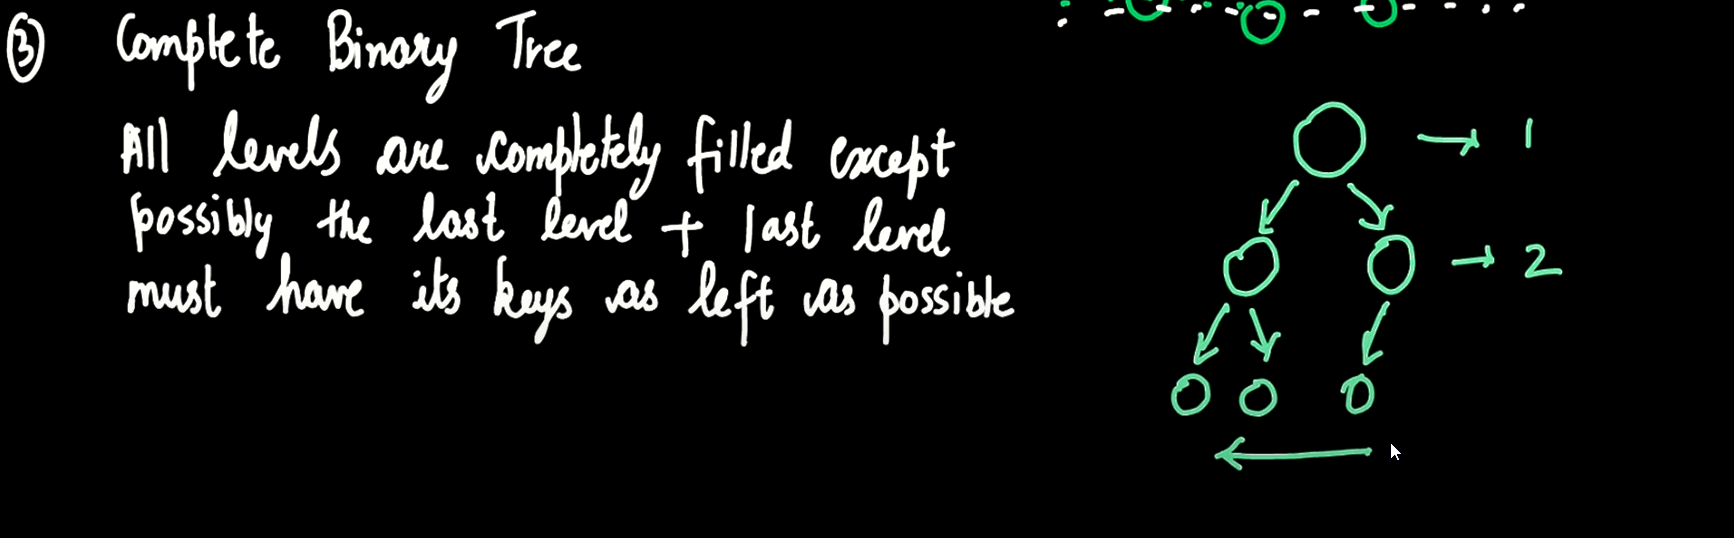 3 Complete Binary Tree
All levels are completely filled except
possibly the last level + last level
must have its keys as left as possible
→ 1
→ 2